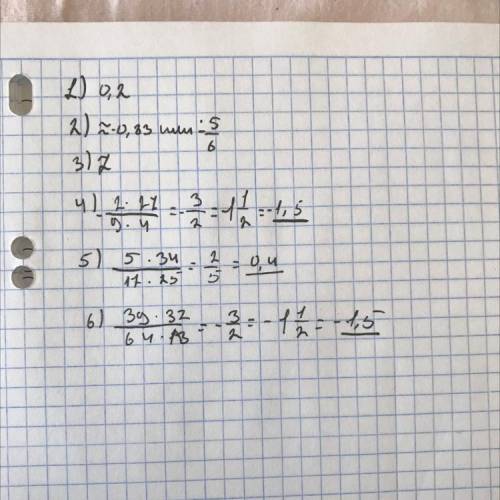 1) 0,2
2) ≈-0,83 или -5/6
3) 7
4) -2·27/9·4 = -3/2 = -1 1/2 = -1,5
5) 5·34/17·25 = 2/5 = 0,4
6) 39·32/64·13 = -3/2 = -1 1/2 = -1,5